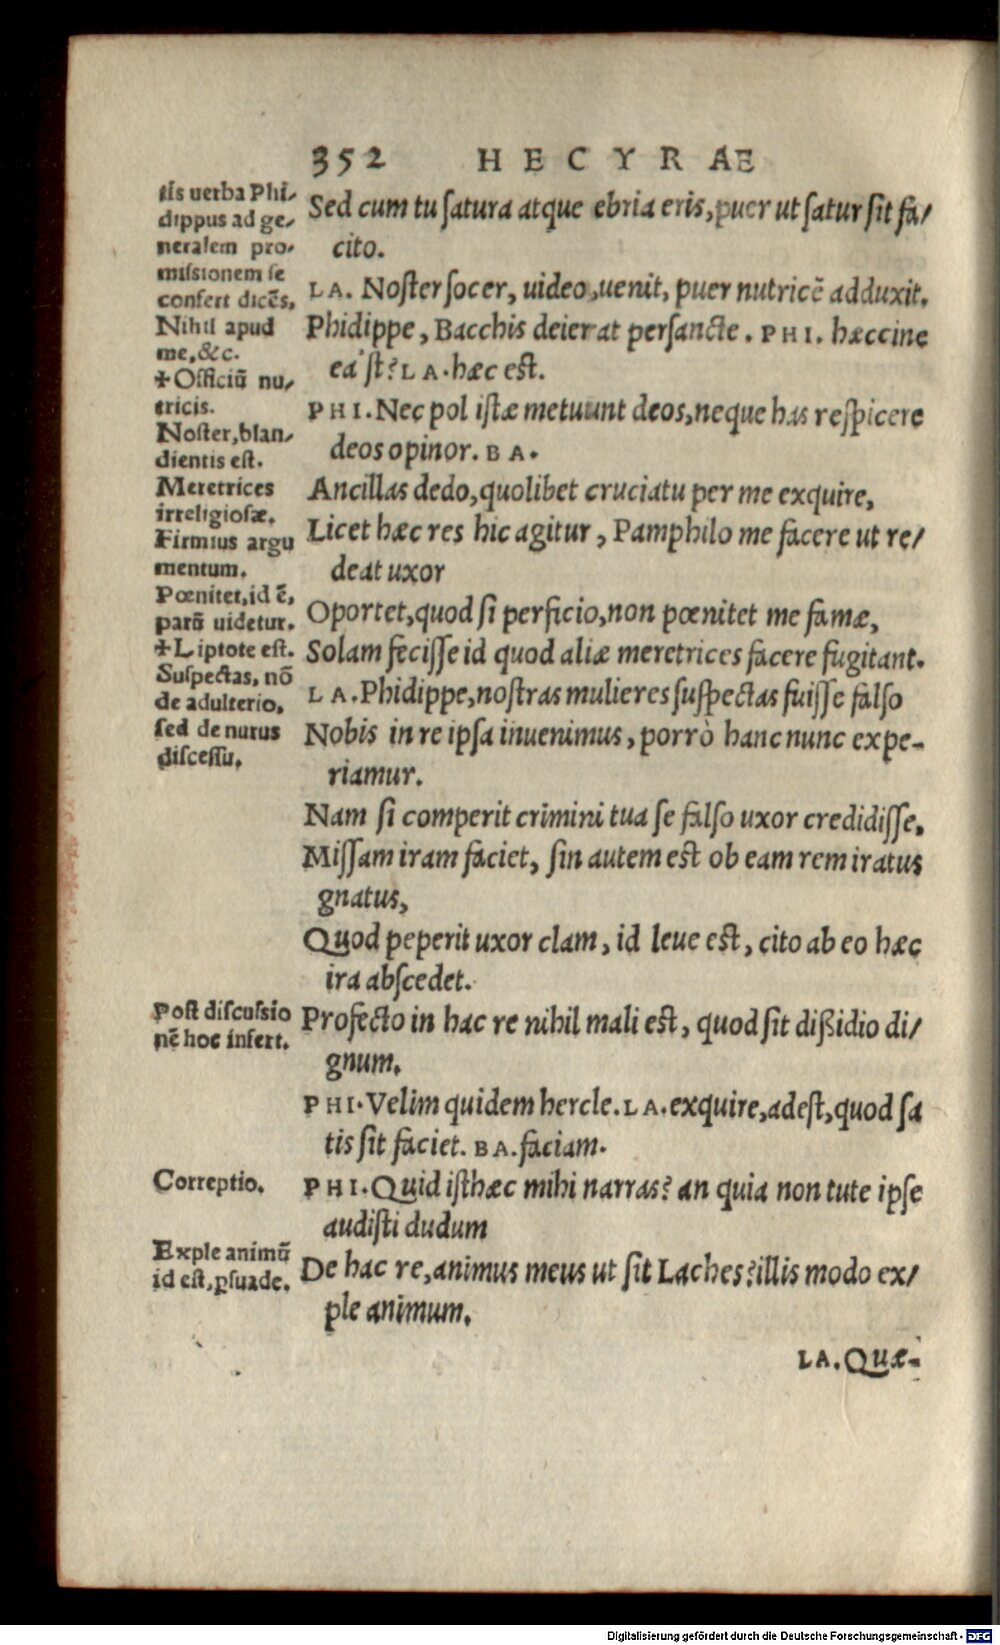 352 HECYRÆ
tis uerba Phi-
dippus ad ge-
neralem pro-
missionem se
confert dicẽs,
Nihil apud
me,&c.
✝Officiũ nu-
tricis.
Noster,blan-
dientis est.
Meretrices
irreligiosæ.
Firmius argu
mentum.
Pœnitet,id ẽ,
parũ uidetur.
✝Liptote est.
Suspectas, nõ
de adulterio,
sed de nurus
discessu.
Post discussio
nẽ hoc infert.
Correptio.
Exple animũ
id est,ꝑsuade.
Sed cum tu ſatura atque ebria eris,puer ut ſatur ſit fa/
cito.
LA. Noſter ſocer, uideo,uenit, puer nutricẽ adduxit.
Phidippe, Bacchis deierat perſancte. PHI. hæccine
ea'ſt?LA.hæc est.
PHI.Nec pol iſtæ metuunt deos,neque has reſpicere
deos opinor. BA.
Ancillas dedo,quolibet cruciatu per me exquire,
Licet hæc res hic agitur, Pamphilo me facere ut re/
deat uxor
Oportet,quod ſi perficio,non pœnitet me famæ,
Solam feciſſe id quod aliæ meretrices facere fugitant.
LA.Phidippe,noſtras mulieres ſuſpectas fuiſſe falſo
Nobis in re ipſa inuenimus, porrò hanc nunc expe-
riamur.
Nam ſi comperit crimini tua ſe falſo uxor credidiſſe,
Miſſam iram faciet, ſin autem est ob eam rem iratus
gnatus,
Quod peperit uxor clam, id leue est, cito ab eo hæc
ira abſcedet.
Profecto in hac re nihil mali est, quod ſit diſsidio di/
gnum.
PHI.Velim quidem hercle.LA.exquire,adeſt,quod ſa
tis ſit faciet. BA.faciam.
PHI.Quid iſthæc mihi narras? an quia non tute ipſe
audiſti dudum
De hac re,animus meus ut ſit Laches?illis modo ex/
ple animum.
LA.Quæ-
Digitalisierung gefördert durch die Deutsche Forschungsgemeinschaft - DFG